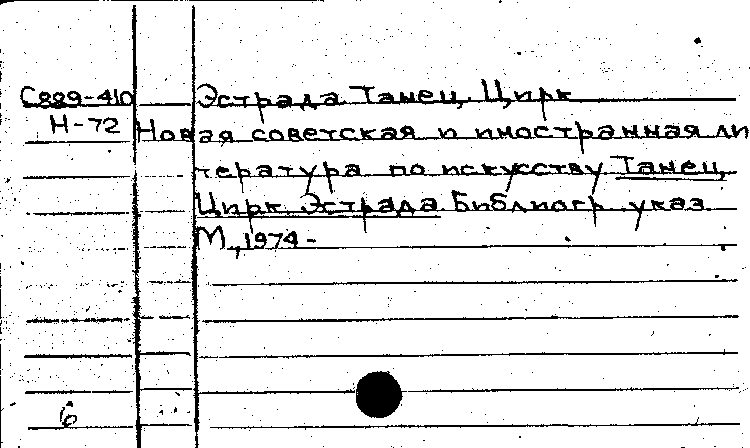 С889-410 Эстрада Танец Цирк
Н-72 Новая советская и иностранная ли
тература по искусству Танец,
Цирк Эстрада Библиогр. указ.
М., 1974 -
6